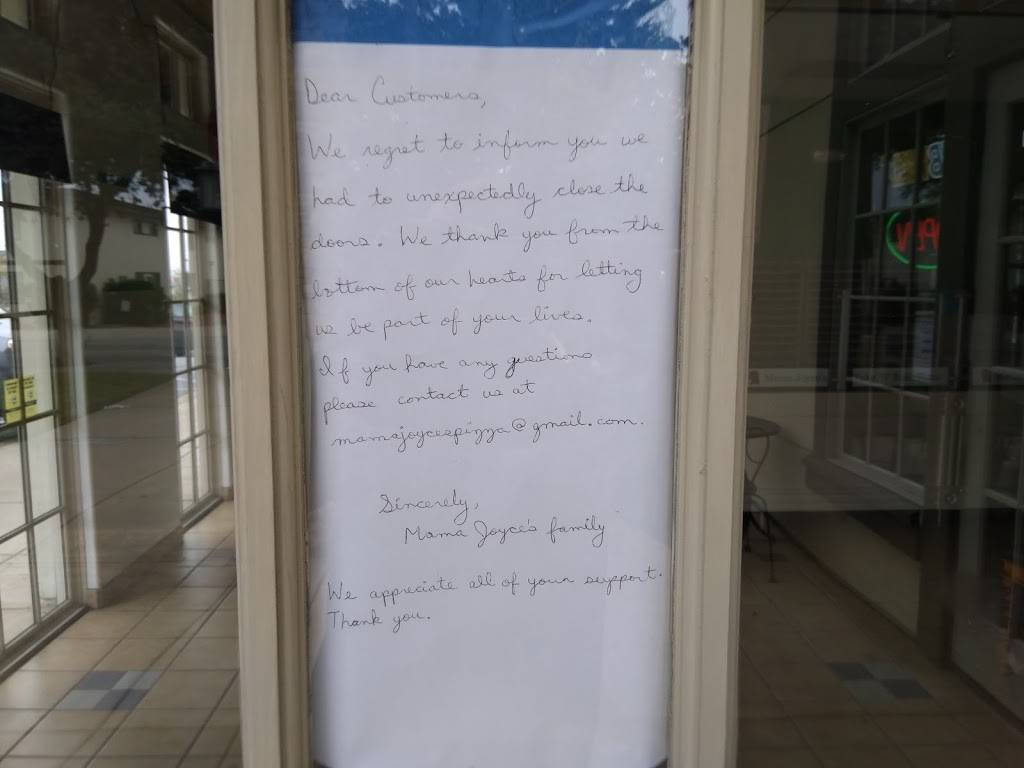 Dear Customers,
We regret to inform you we
had to unexpectedly close the
doors. We thank you from the
bottom of our hearts for letting
us be part of your lives.
If you have any questions
please contact us at
mamajoycespizza@gmail.com.
Sincerely,
Mama Joyce's family
We appreciate all of your support.
Thank you.